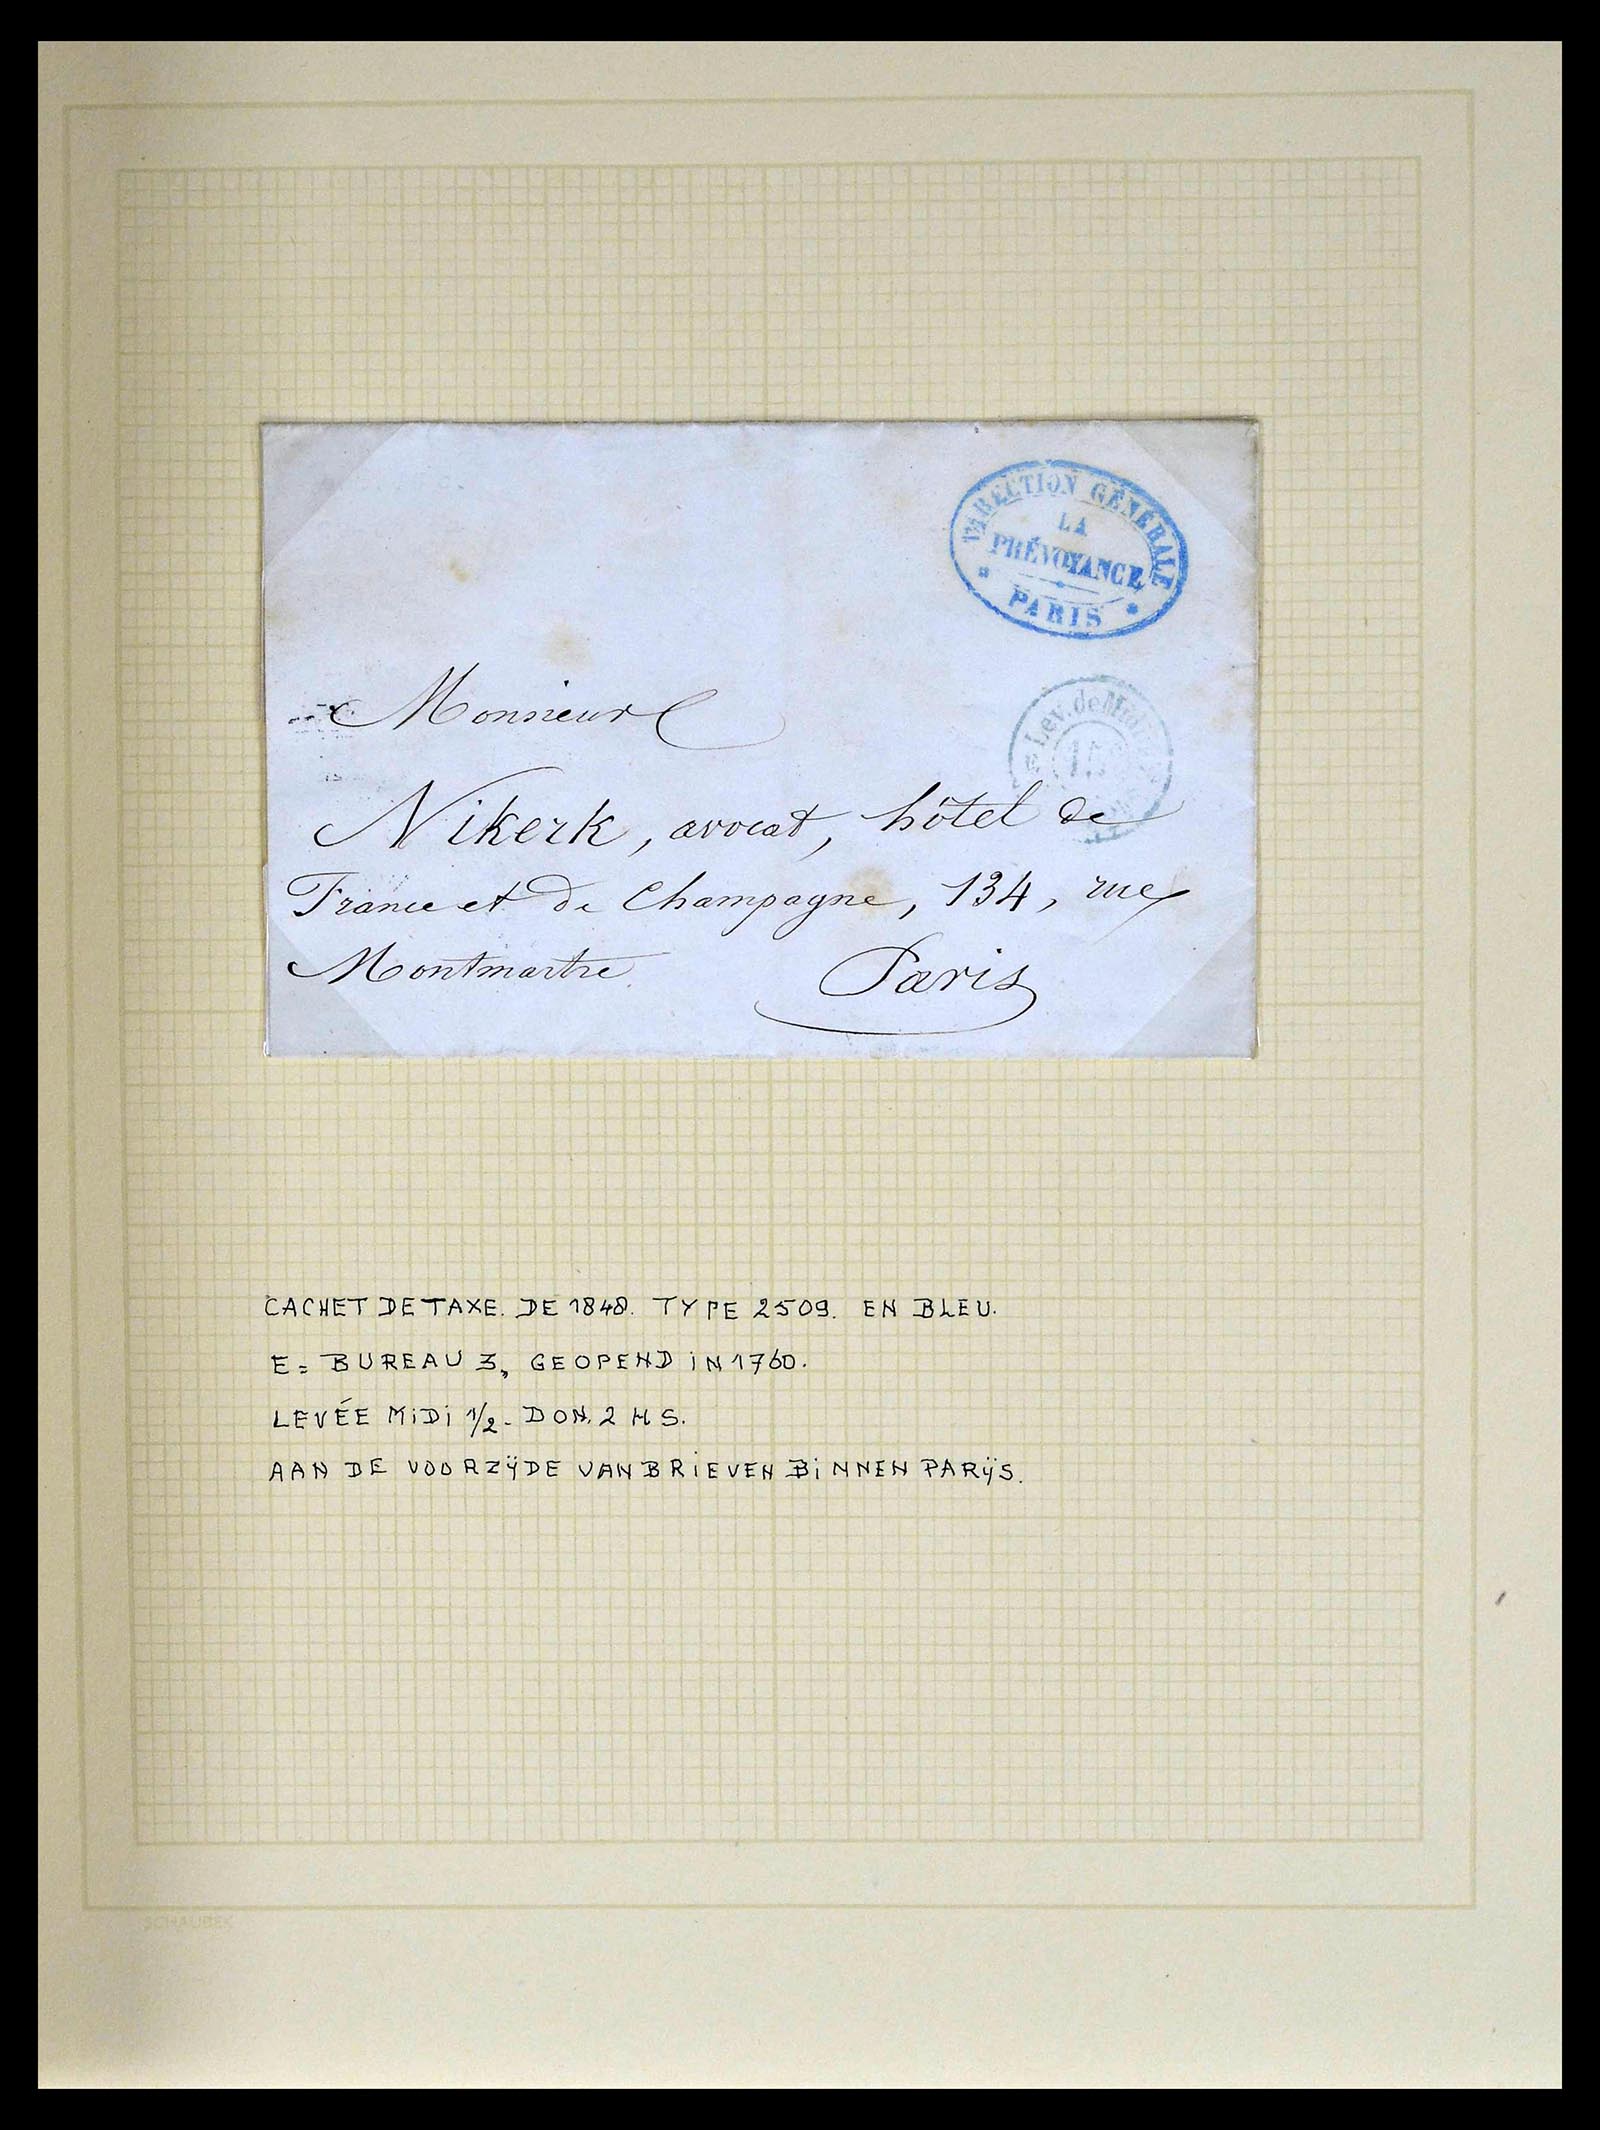 DIRECTION GÉNÉRALE
LA
PRÉVOYANCE
PARIS
Lev. de Midi
15
Monsieur
Nikerk, avocat, hôtel de
France et de Champagne, 134, rue
Montmartre Paris
CACHET DE TAXE. DE 1848. TYPE 2509. EN BLEU.
E = BUREAU 3, GEOPEND IN 1760.
LEVÉE MIDI 1/2 - DON. 2 H S.
AAN DE VOORZŸDE VAN BRIEVEN BINNEN PARŸS.
SCHAUBEK